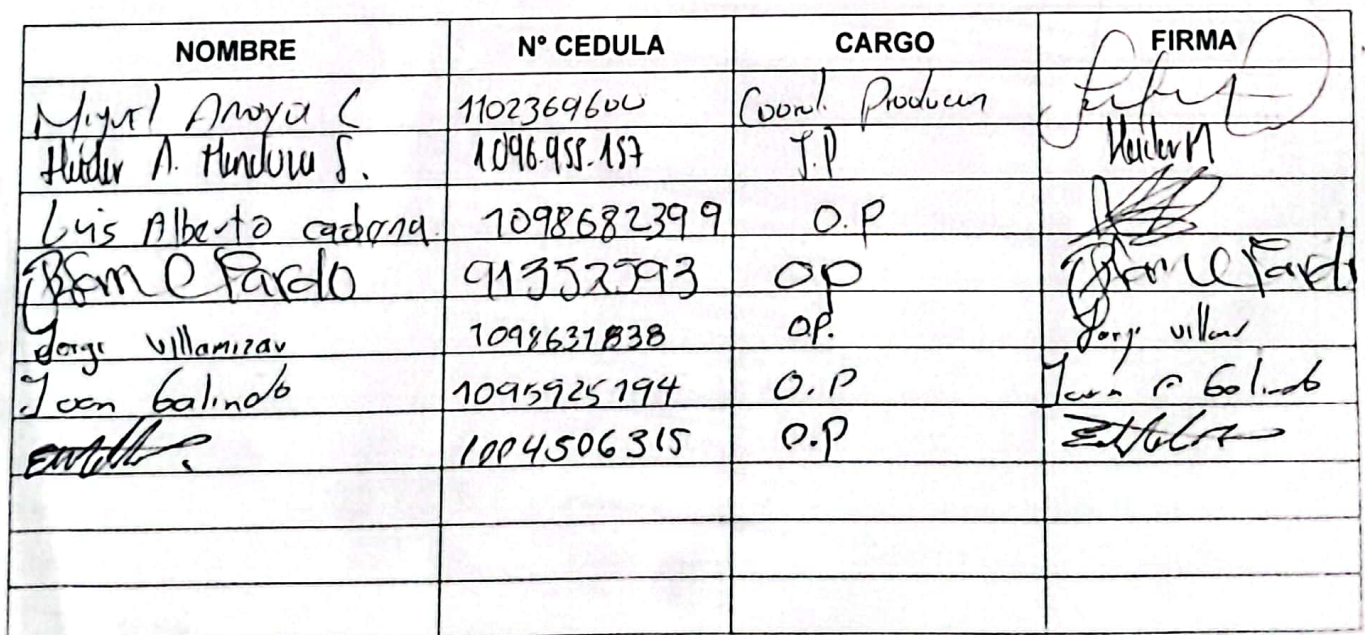 NOMBRE N° CEDULA CARGO FIRMA
Miguel Anaya C 1102369600 Coord. Produccn
Heider A. Mendoza S. 1096.955.157 J.P Heider M
Luis Alberto cadena 1098682399 O.P
C Pardo 91352593 OP C Pardo
Jorge Villamizar 1098631838 O.P. Jorge Villami
Ivan Galindo 1095925194 O.P Ivan C Galindo
1004506315 O.P